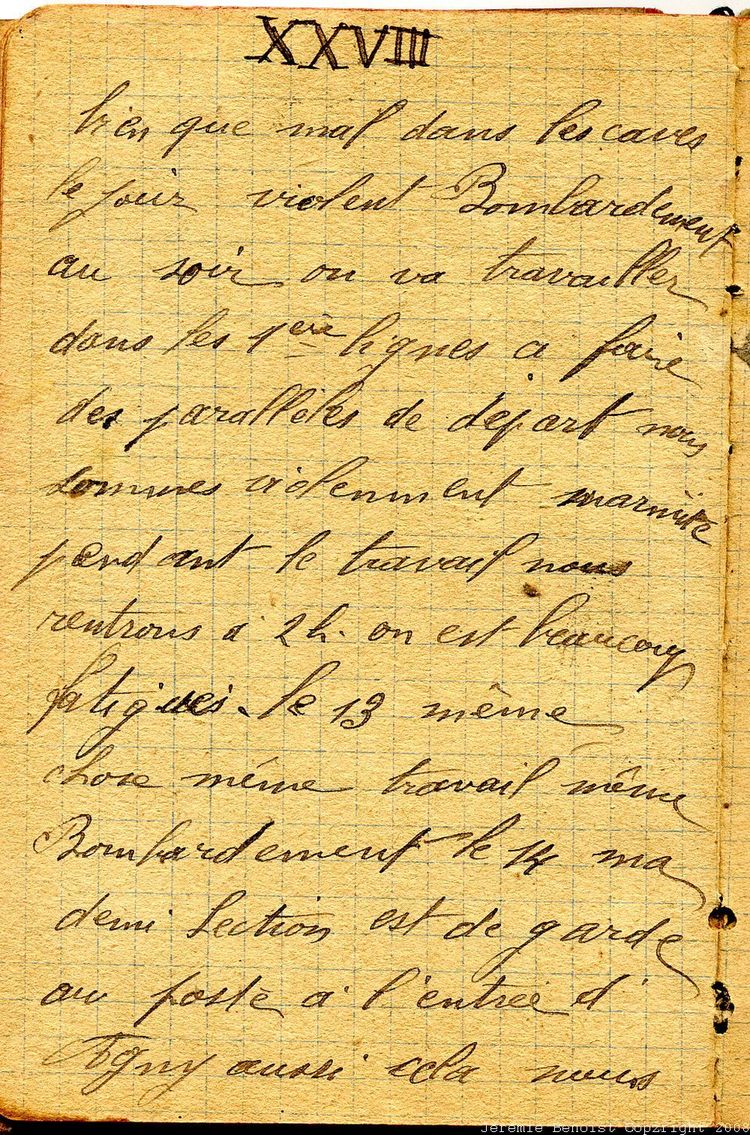 XXVIII
bien que mal dans les caves
le jour violent Bombardement
au soir on va travailler
dans les 1ère lignes a faire
des parallèles de départ nous
sommes violenment marmité
pendant le travail nous
rentrons à 2h. on est beaucoup
fatigués. le 13 même
chose même travail même
Bombardement le 14 ma
demi section est de garde
au poste à l'entrée d'
Agny aussi cela nous
Jeremie Benoist Copyright